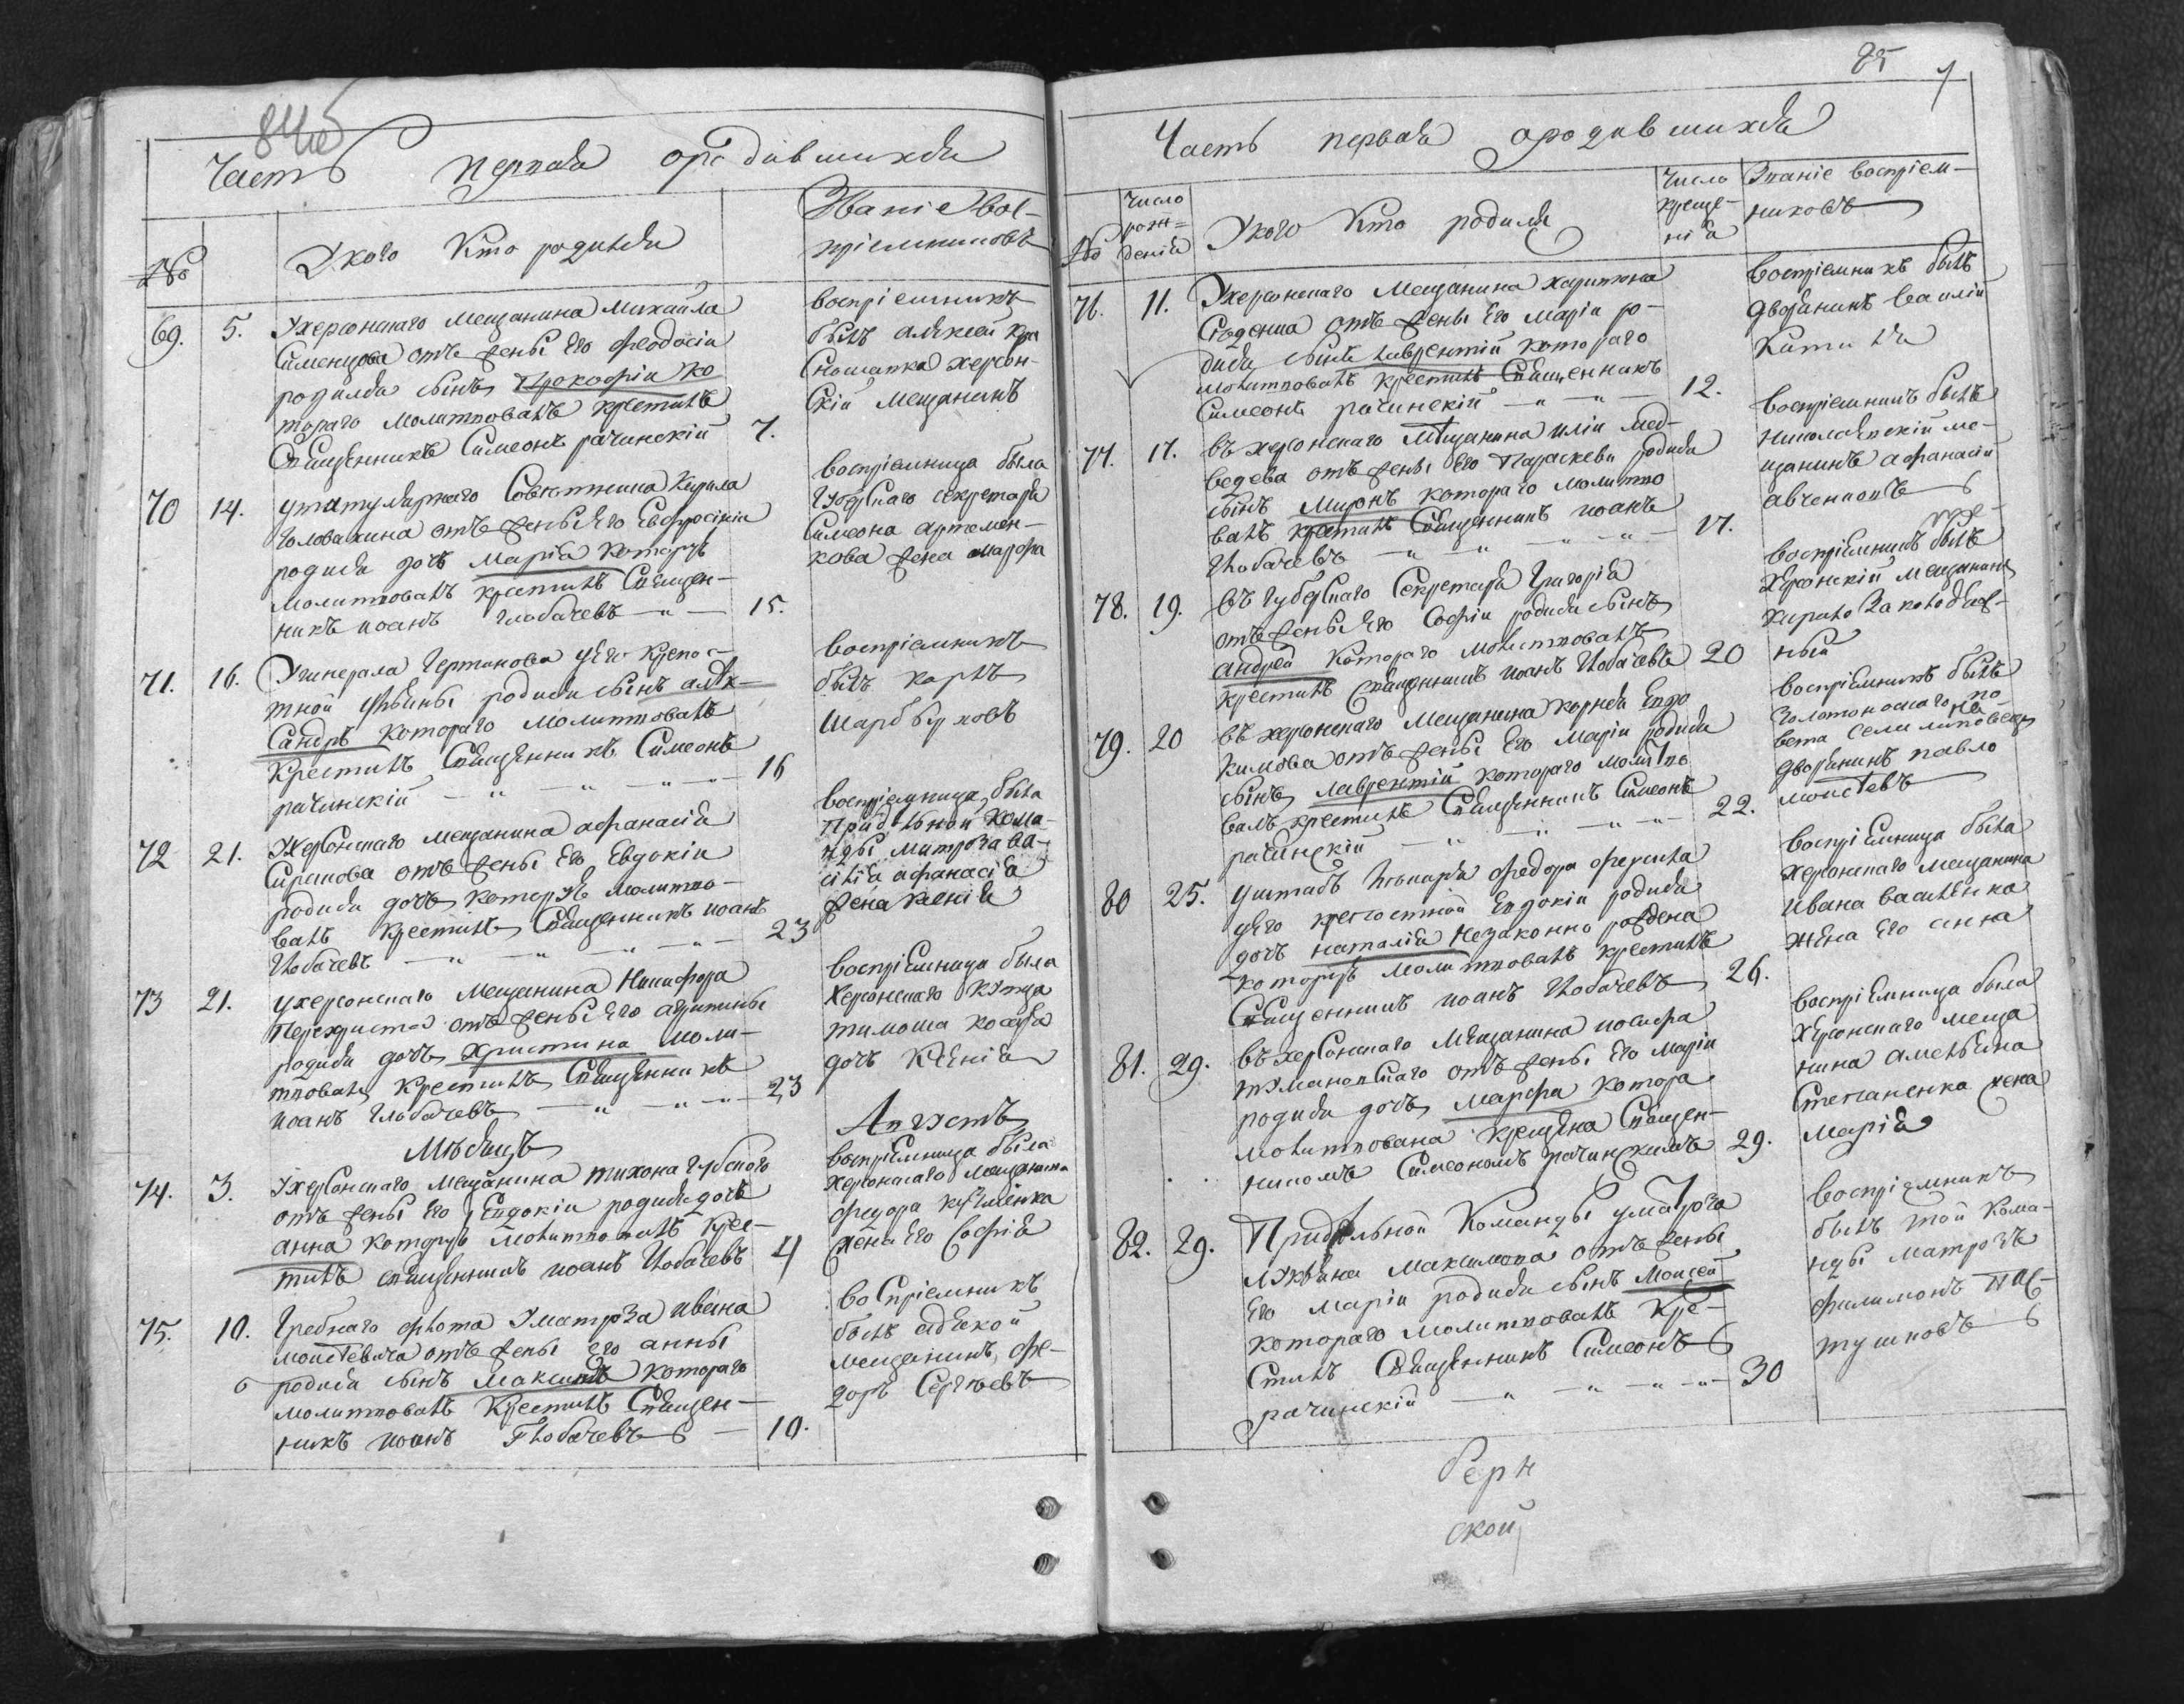 84об
Часть первая о родившихся
№ У кого Кто родился Званіе вос-
пріемниковъ
69. 5. У херсонскаго мещанина Михайла
Сименцова отъ жены Его Феодосіи
родился сынъ Прокофій ко
тораго молитвовалъ крестилъ
Священникъ Симеонъ рачинскій 7.
воспріемникъ
былъ алексей
херсон-
скій мещанинъ
70 14. у титулярнаго Советника Кирила
Головахина отъ жены Его Евфросиніи
родися дочъ Марія которую
молитвовалъ крестилъ Священ-
никъ иоанъ глобачевъ 15.
воспріемница была
Губерскаго секретаря
Симеона артемен-
кова жена марфа
71. 16. У генерала Гертинова у Его крепос-
тной Ульяны родися сынъ алек-
сандръ котораго молитвовалъ
крестилъ Священникъ Симеонъ
рачинскій 16
воспріемникъ
былъ карлъ
72 21. У херсонскаго мещанина афанасія
отъ жены Его Евдокіи
родися дочъ которую молитво-
валъ крестилъ Священникъ иоанъ
Глобачевъ 23
воспріемница была
Придельной кома-
нды матроза ва-
силія афанасіа
жена ксенія
73 21. у херсонскаго мещанина Никифора
Перехриста отъ жены Его агрипины
родися дочъ Христина моли-
твовалъ крестилъ Священникъ
иоанъ глобачевъ 23
воспріемница была
херсонскаго купца
тимоша косара
дочъ Ксенія
Мѣсяцъ Августъ
74. 3. У херсонскаго мещанина тихона Губскаго
отъ жены Его Евдокіи родися дочъ
анна которую молитвовалъ крес-
тилъ священникъ иоанъ Глобачевъ 4
воспріемница была
херсонскаго мещанина
федора
жена Его Софія
75. 10. Гребнаго флота У матроза ивана
моисеевича отъ жены его анны
родися сынъ Максимъ котораго
молитвовалъ Крестилъ Священ-
никъ иоанъ Глобачевъ 10.
воспріемникъ
былъ одѣской
мещанинъ фе-
доръ Сергѣевъ
85
Часть первая о родившихся
№ число рож=
денія У кого Кто родился число
креще-
нія Званіе воспріем-
никовъ
76. 11. У херсонскаго мещанина харитона
отъ жены Его Маріи ро-
дися сынъ лаврентій котораго
молитвовалъ крестилъ Священникъ
Симеонъ рачинскій 12.
воспріемникъ былъ
дворянинъ василій
77. 17. въ херсонскаго мещанина иліи мед-
ведева отъ жены Его Параскеви родися
сынъ Миронъ котораго молитво
валъ крестилъ Священникъ иоанъ
Глобачевъ 17.
воспріемникъ былъ
николаевскій ме-
щанинъ афанасій
78. 19. въ губерскаго Секретаря Григорія
отъ жены Его Софіи родися сынъ
андрей котораго молитвовалъ
крестилъ священникъ иоанъ Глобачевъ 20
воспріемникъ былъ
херсонскій мещанинъ
79. 20 въ херсонскаго мещанина корнея Евдо
кимова отъ жены Его Маріи родися
сынъ лаврентій котораго молитво
валъ крестилъ Священникъ Симеонъ
рачинскій 22.
воспріемникъ былъ
золотоноскаго по
вета
дворянинъ павло
моисѣевъ
80 25. у штабъ лекаря федора
у Его крепостной Евдокіи родися
дочъ наталія незаконно рождена
которую молитвовалъ крестилъ
Священникъ иоанъ Глобачевъ 26.
воспріемница была
херсонскаго мещанина
ивана василенка
жена Его анна
81. 29. въ херсонскаго мещанина иосифа
туманевскаго отъ жены Его Маріи
родися дочъ Марфа котора
молитвована крещена Священ-
никомъ Симеономъ рачинскимъ 29.
воспріемница была
херсонскаго меща
нина амельяна
Степаненка жена
Марія
82. 29. Придельной Команды у матроза
лукьяна Максимова отъ жены
Его Маріи родися сынъ Моисей
котораго молитвовалъ кре-
стилъ Священникъ Симеонъ
рачинскій 30
воспріемникъ
былъ той кома-
нды матрозъ
филимонъ пас-
тушковъ
ской